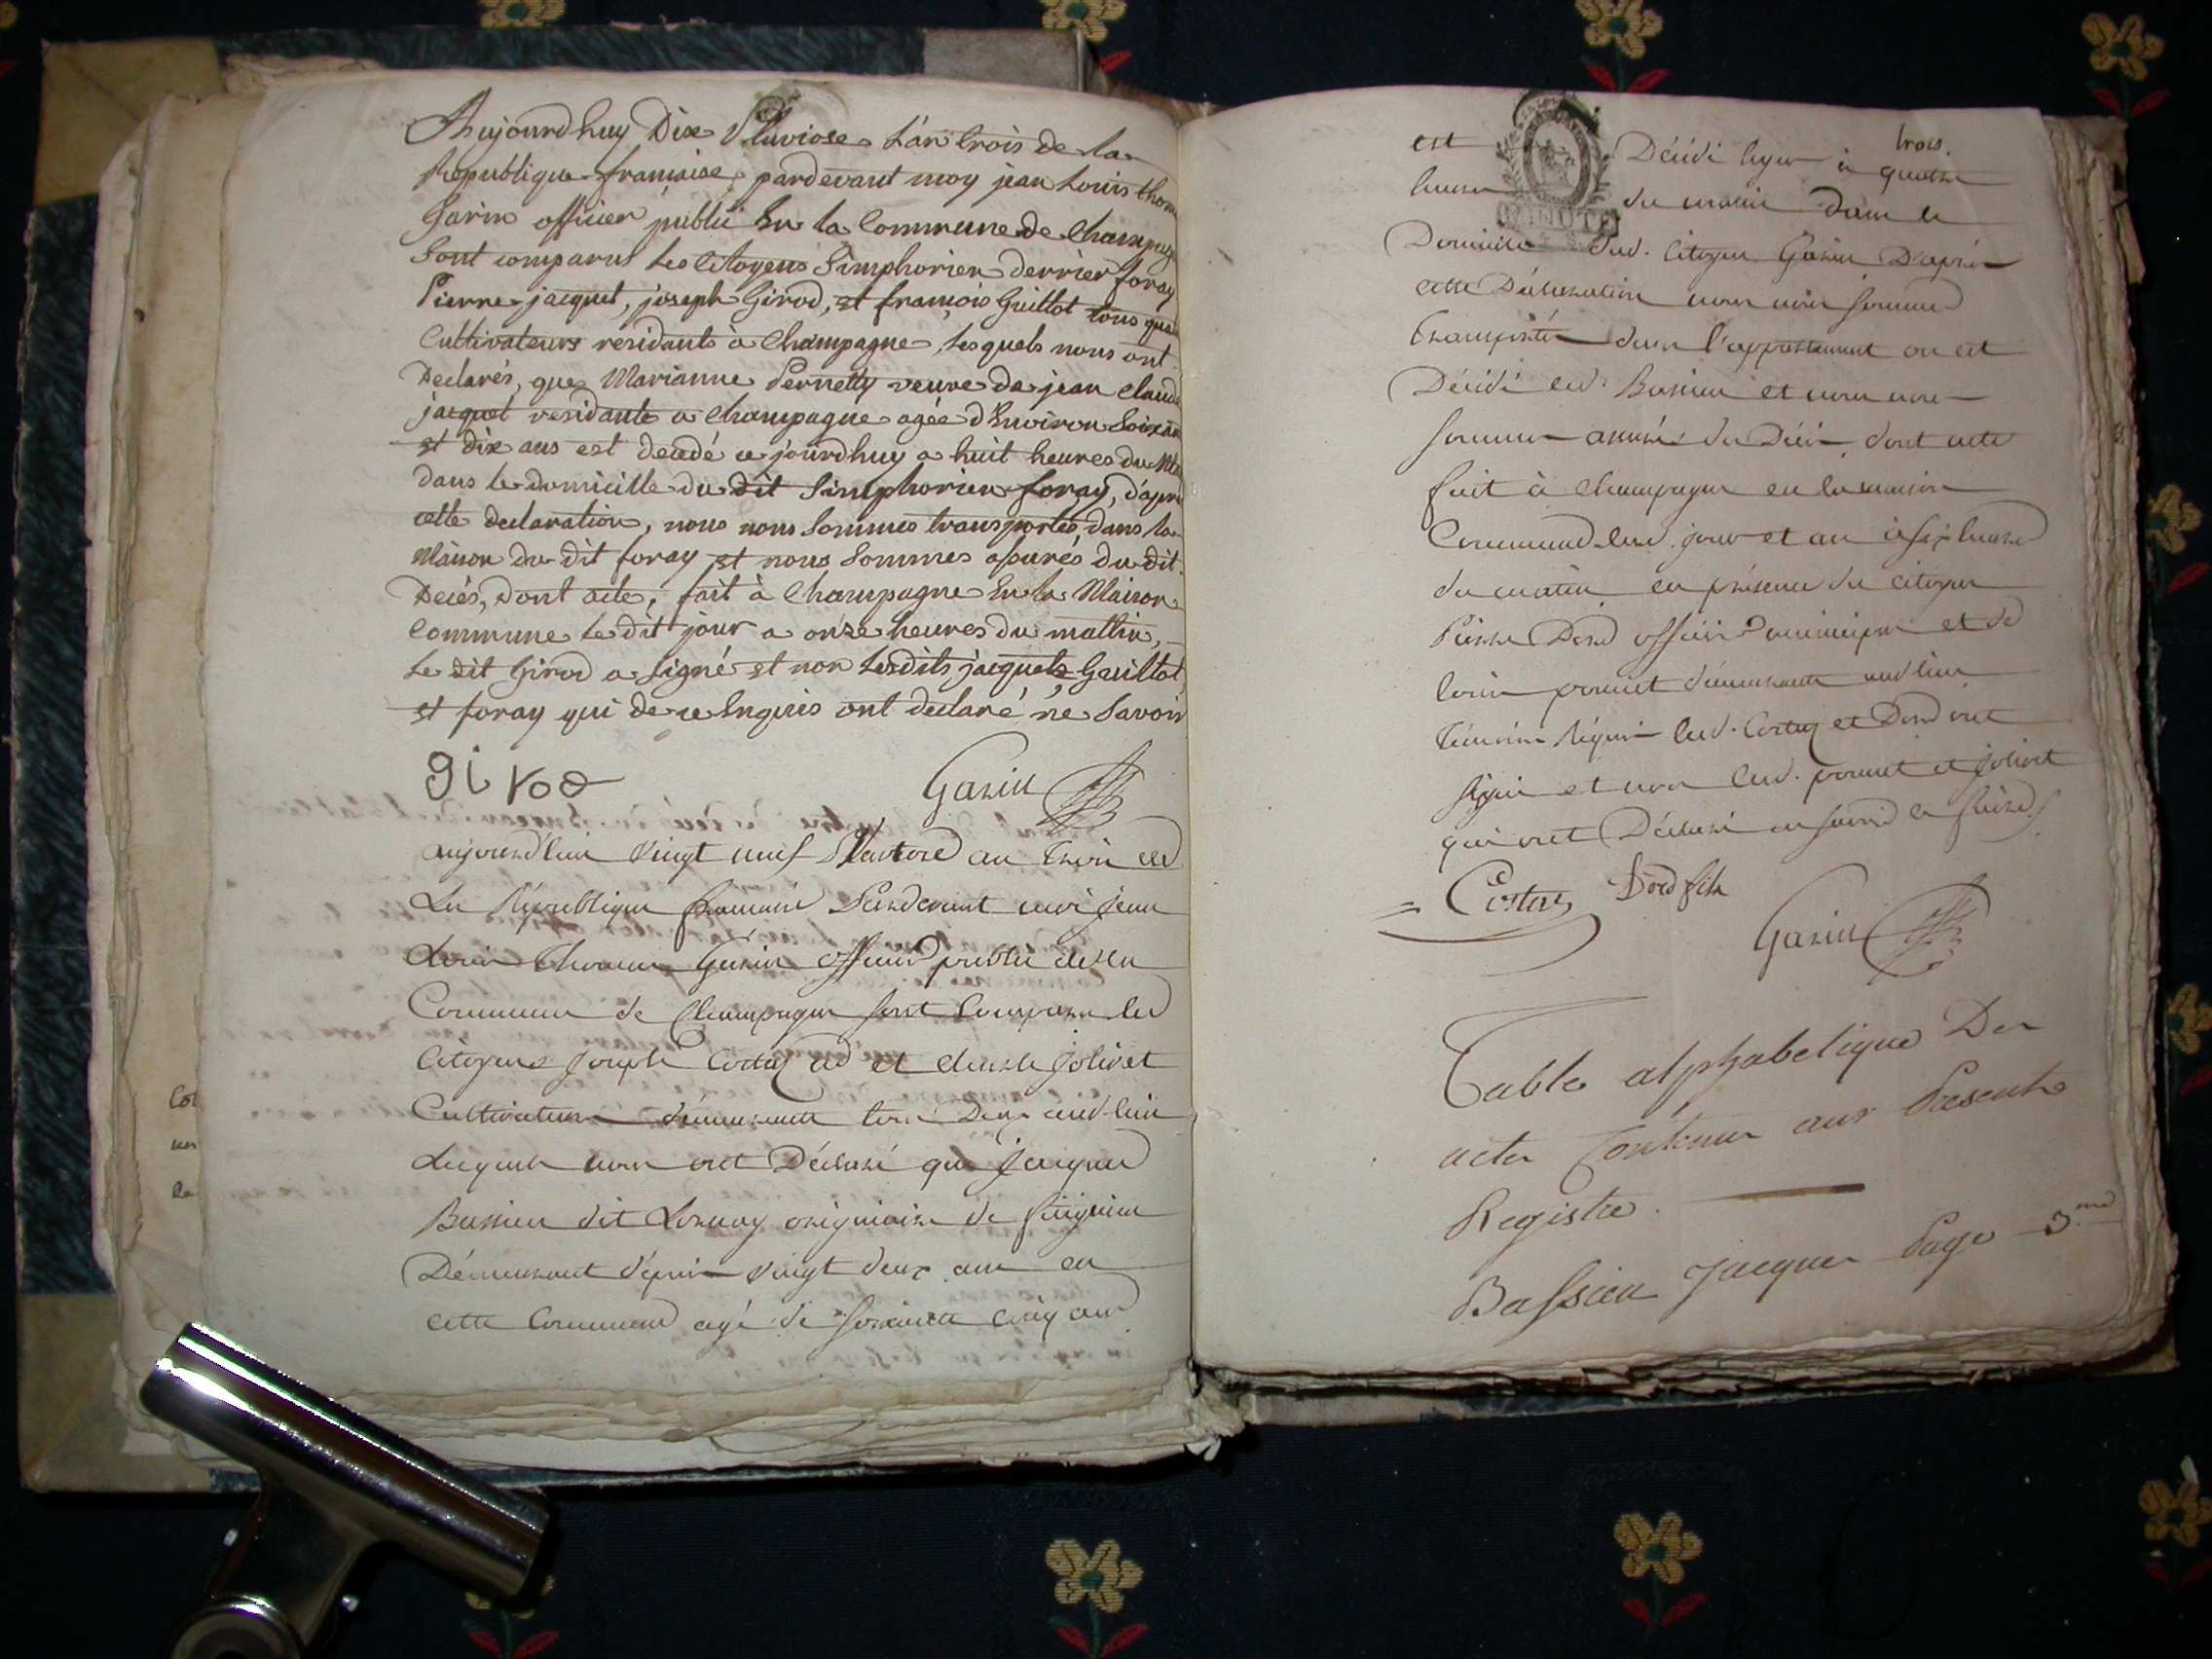 Aujourdhuy Dix Pluviose L'an trois de la
Republique francaise, pardevant moy jean Louis thom
Garin officier public En la Commune de Champag
Sont comparus Les Citoyens Simphorien derrier foray
Pierre jacquet, joseph Girod, et francois Guillot tous qua
Cultivateurs residants à Champagne, Lesquels nous ont
Declarés, que Marianne Pernetty veuve de jean Claude
jacquet residante a Champagne agée d'Environ Soixan
et dix ans est decedé ce jourdhuy a huit heures du Ma
dans le domicille du dit Simphorien foray, d'apres
cette declaration, nous nous Sommes transportés dans la
Maison du dit foray et nous Sommes assurés du dit
Decés, dont acte, fait à Champagne En la Maison
Commune Le dit jour a onze heures du mattin,
Le dit Girod a Signé et non Lesdits jacquet, Guillot,
et foray qui de ce Enquis ont declaré ne Savoir
girod Garin
aujourd'hui vingt neuf an trois de
La République francaise Pardevant moi Jean
Louis Thomas Garin officier public de la
Commune de Champagne sont comparus les
Citoyens Joseph et Jolivet
Cultivateurs demeurants tous Deux aud. lieu
Lesquels nous ont Déclaré que Jacques
Bassieu dit originaire de
Démeurant dépuis vingt deux ans en
cette Commune agé de soixante cinq ans
est Décédé hyer à trois
quatre
heures du matin dans le
Domicile dud. Citoyen Garin D'après
cette Déclaration nous nous sommes
Transportés dans l'appartement ou est
Décédé led. Bassieu et nous nous
sommes assurés du Décès dont acte
fait à Champagne en la maison
Commune lesd. jour et an à six heures
du matin en présence du citoyen
Pierre Dord officier municipal et de
Louis demeurants aud. lieu
Témoins Réquis lesd. et Dord ont
signé et non lesd. et Jolivet
qui ont Déclaré ne savoir le faire
Dord fils
Garin
Table alphabetique Des
actes Contenus aux Presents
Registre.
Bassieu Jacques Page 3me